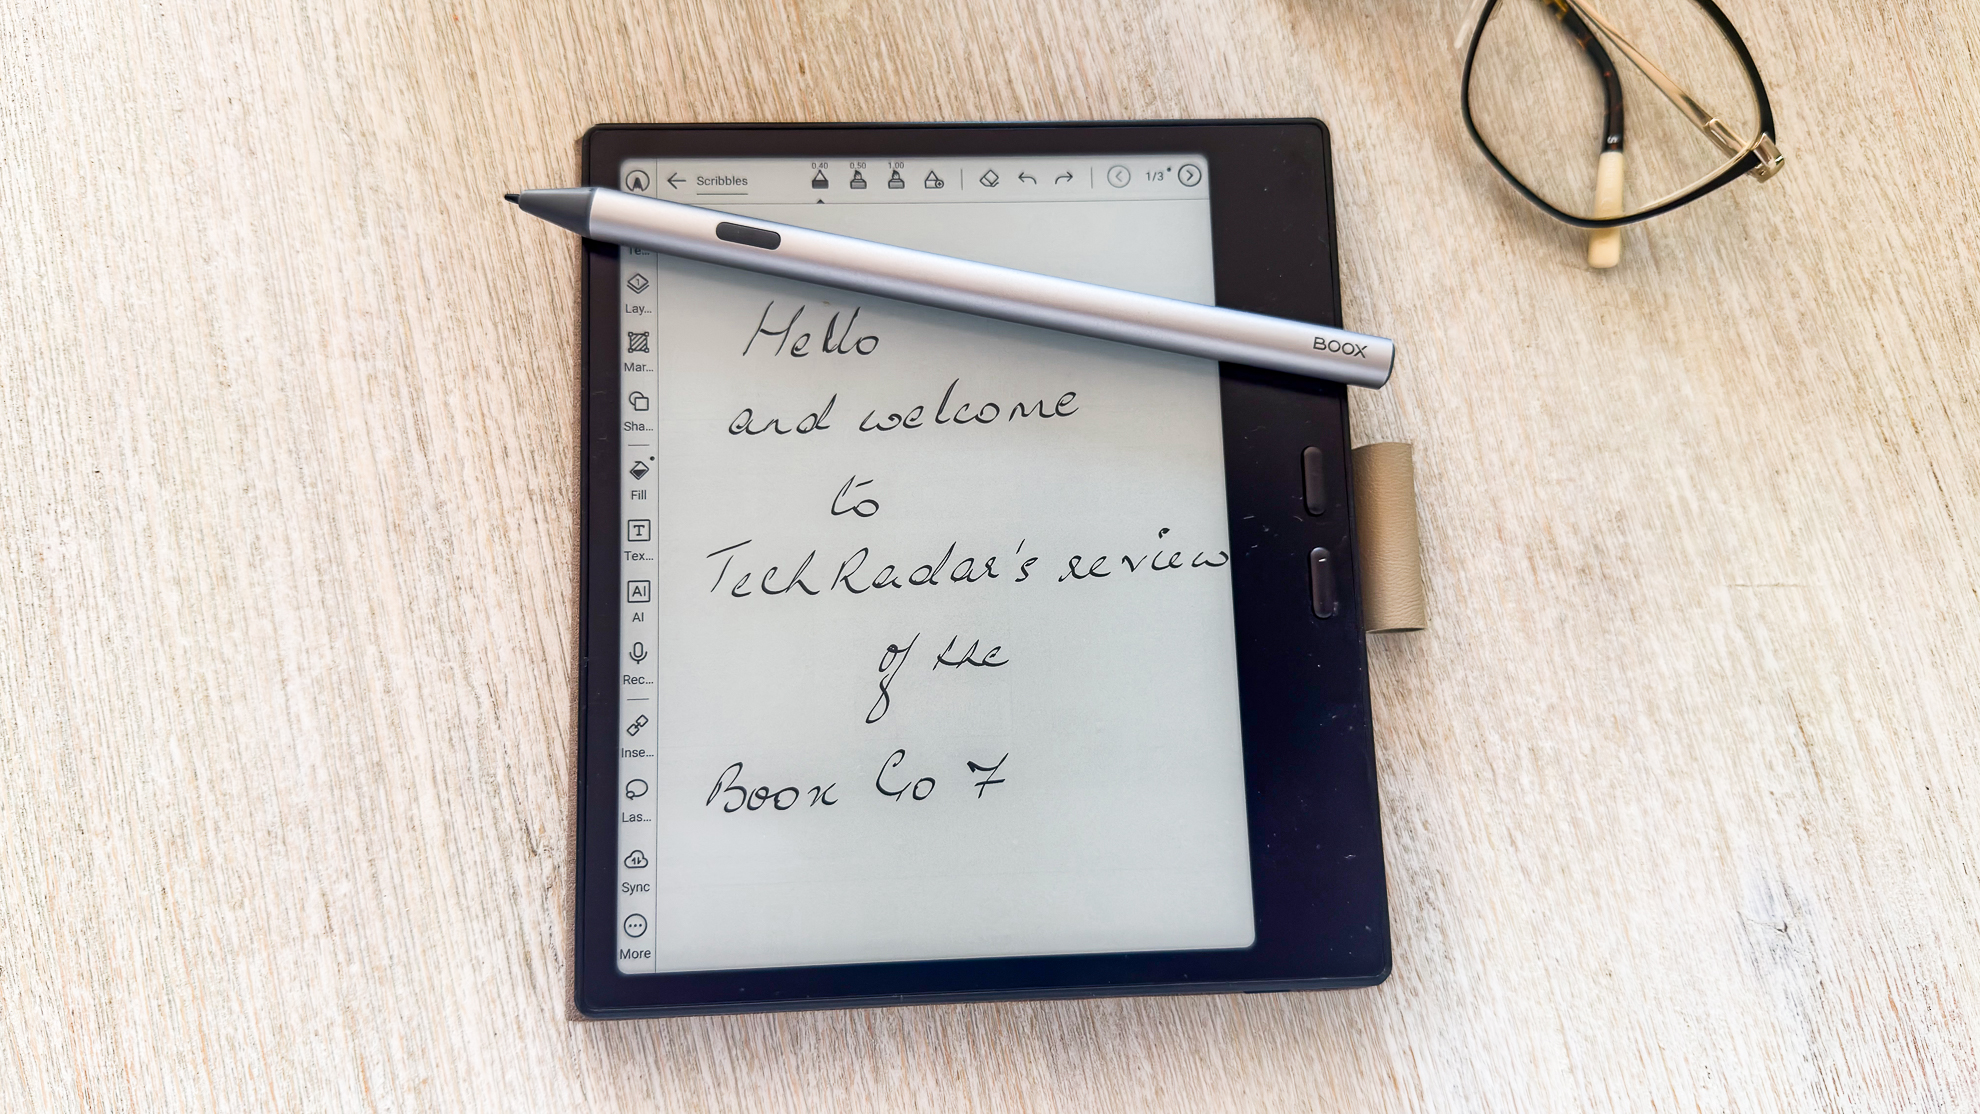 0.40 0.50 1.00
Scribbles
1/3
Te...
Lay...
Mar...
Sha...
Fill
T
Tex...
AI
AI
Rec...
Inse...
Las...
Sync
More
BOOX
Hello
and welcome
to
TechRadar's review
of the
Boox Go 7